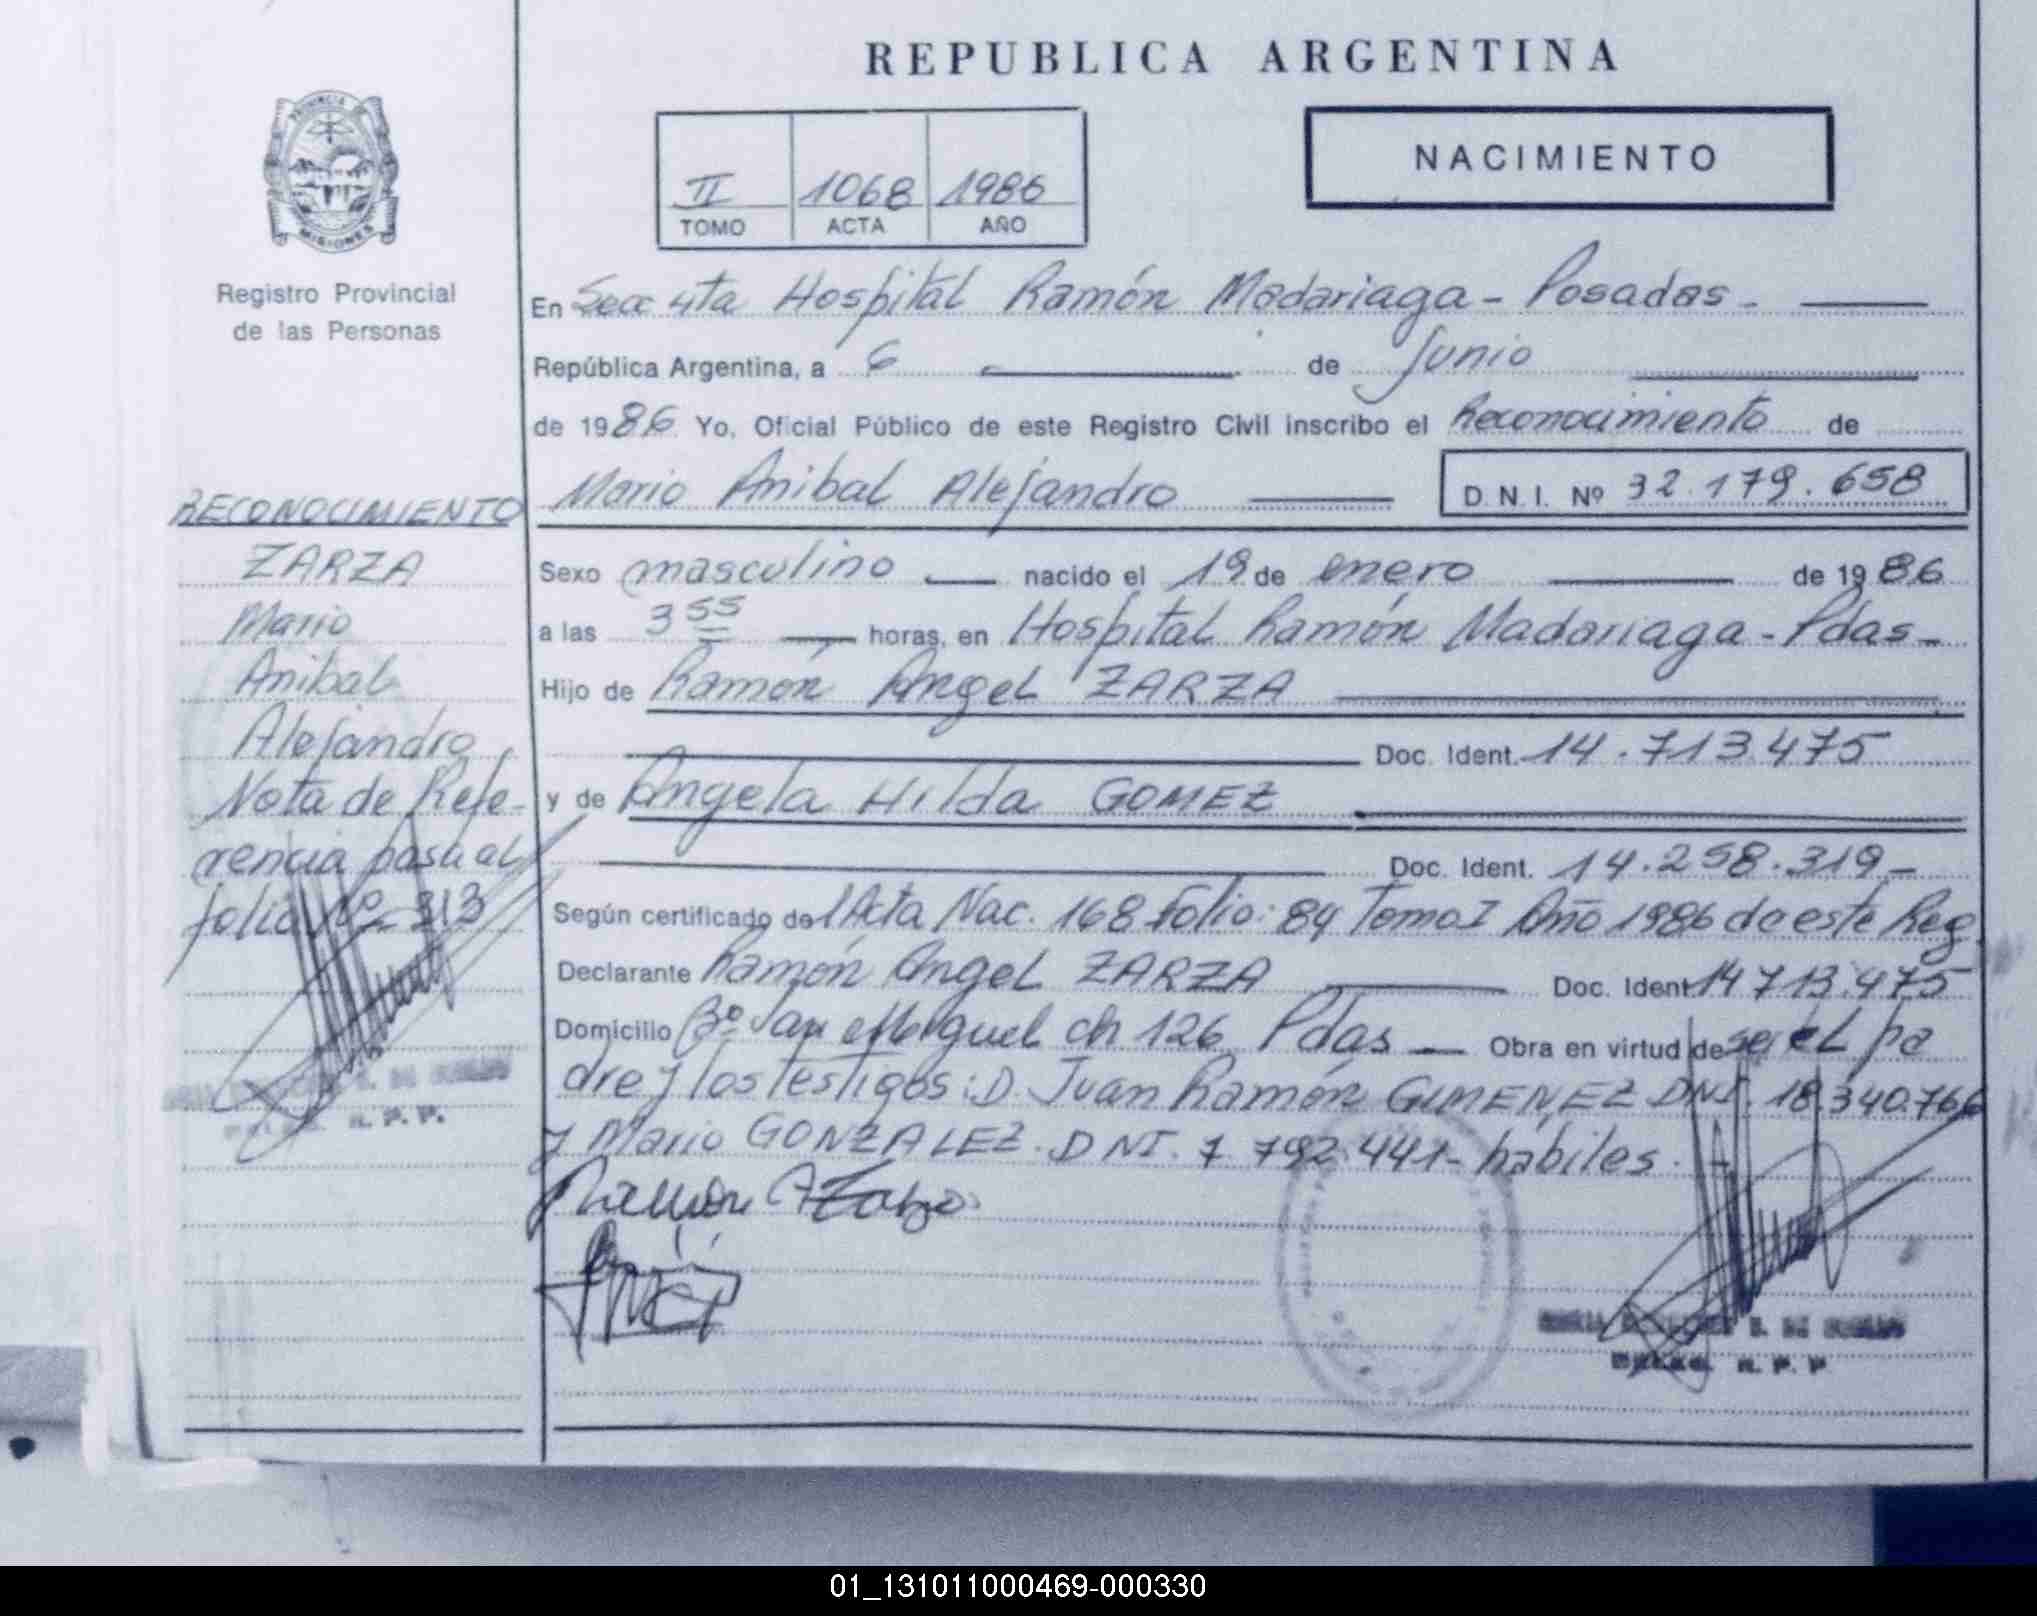 REPUBLICA ARGENTINA
PROVINCIA DE
MISIONES
Registro Provincial
de las Personas
II 1068 1986
TOMO ACTA AÑO
NACIMIENTO
En Secc 4ta Hospital Ramón Madariaga - Posadas -
República Argentina, a 6 de Junio
de 1986 Yo, Oficial Público de este Registro Civil inscribo el Reconocimiento de
Mario Anibal Alejandro D.N.I. Nº 32.179.658
Sexo masculino nacido el 19 de enero de 1986
a las 3 55 horas, en Hospital Ramón Madariaga - Pdas -
Hijo de Ramón Angel ZARZA
Doc. Ident. 14.713.475
y de Angela Hilda GOMEZ
Doc. Ident. 14.258.319 -
Según certificado de l Acta Nac. 168 Folio: 84 Tomo I Año 1986 de este Reg
Declarante Ramón Angel ZARZA Doc. Ident. 14 713.475
Domicilio Bº San Miguel ch 126 Pdas - Obra en virtud de ser el pa
dre y los testigos: D. Juan Ramón GIMENEZ DNI. 18.340.766
y Mario GONZALEZ. DNI. 7 792.441 - hábiles. -
RECONOCIMIENTO
ZARZA
Mario
Anibal
Alejandro
Nota de Refe-
rencia pasa al
folio Nº 313
R. P. P.
R. P. P
01_131011000469-000330